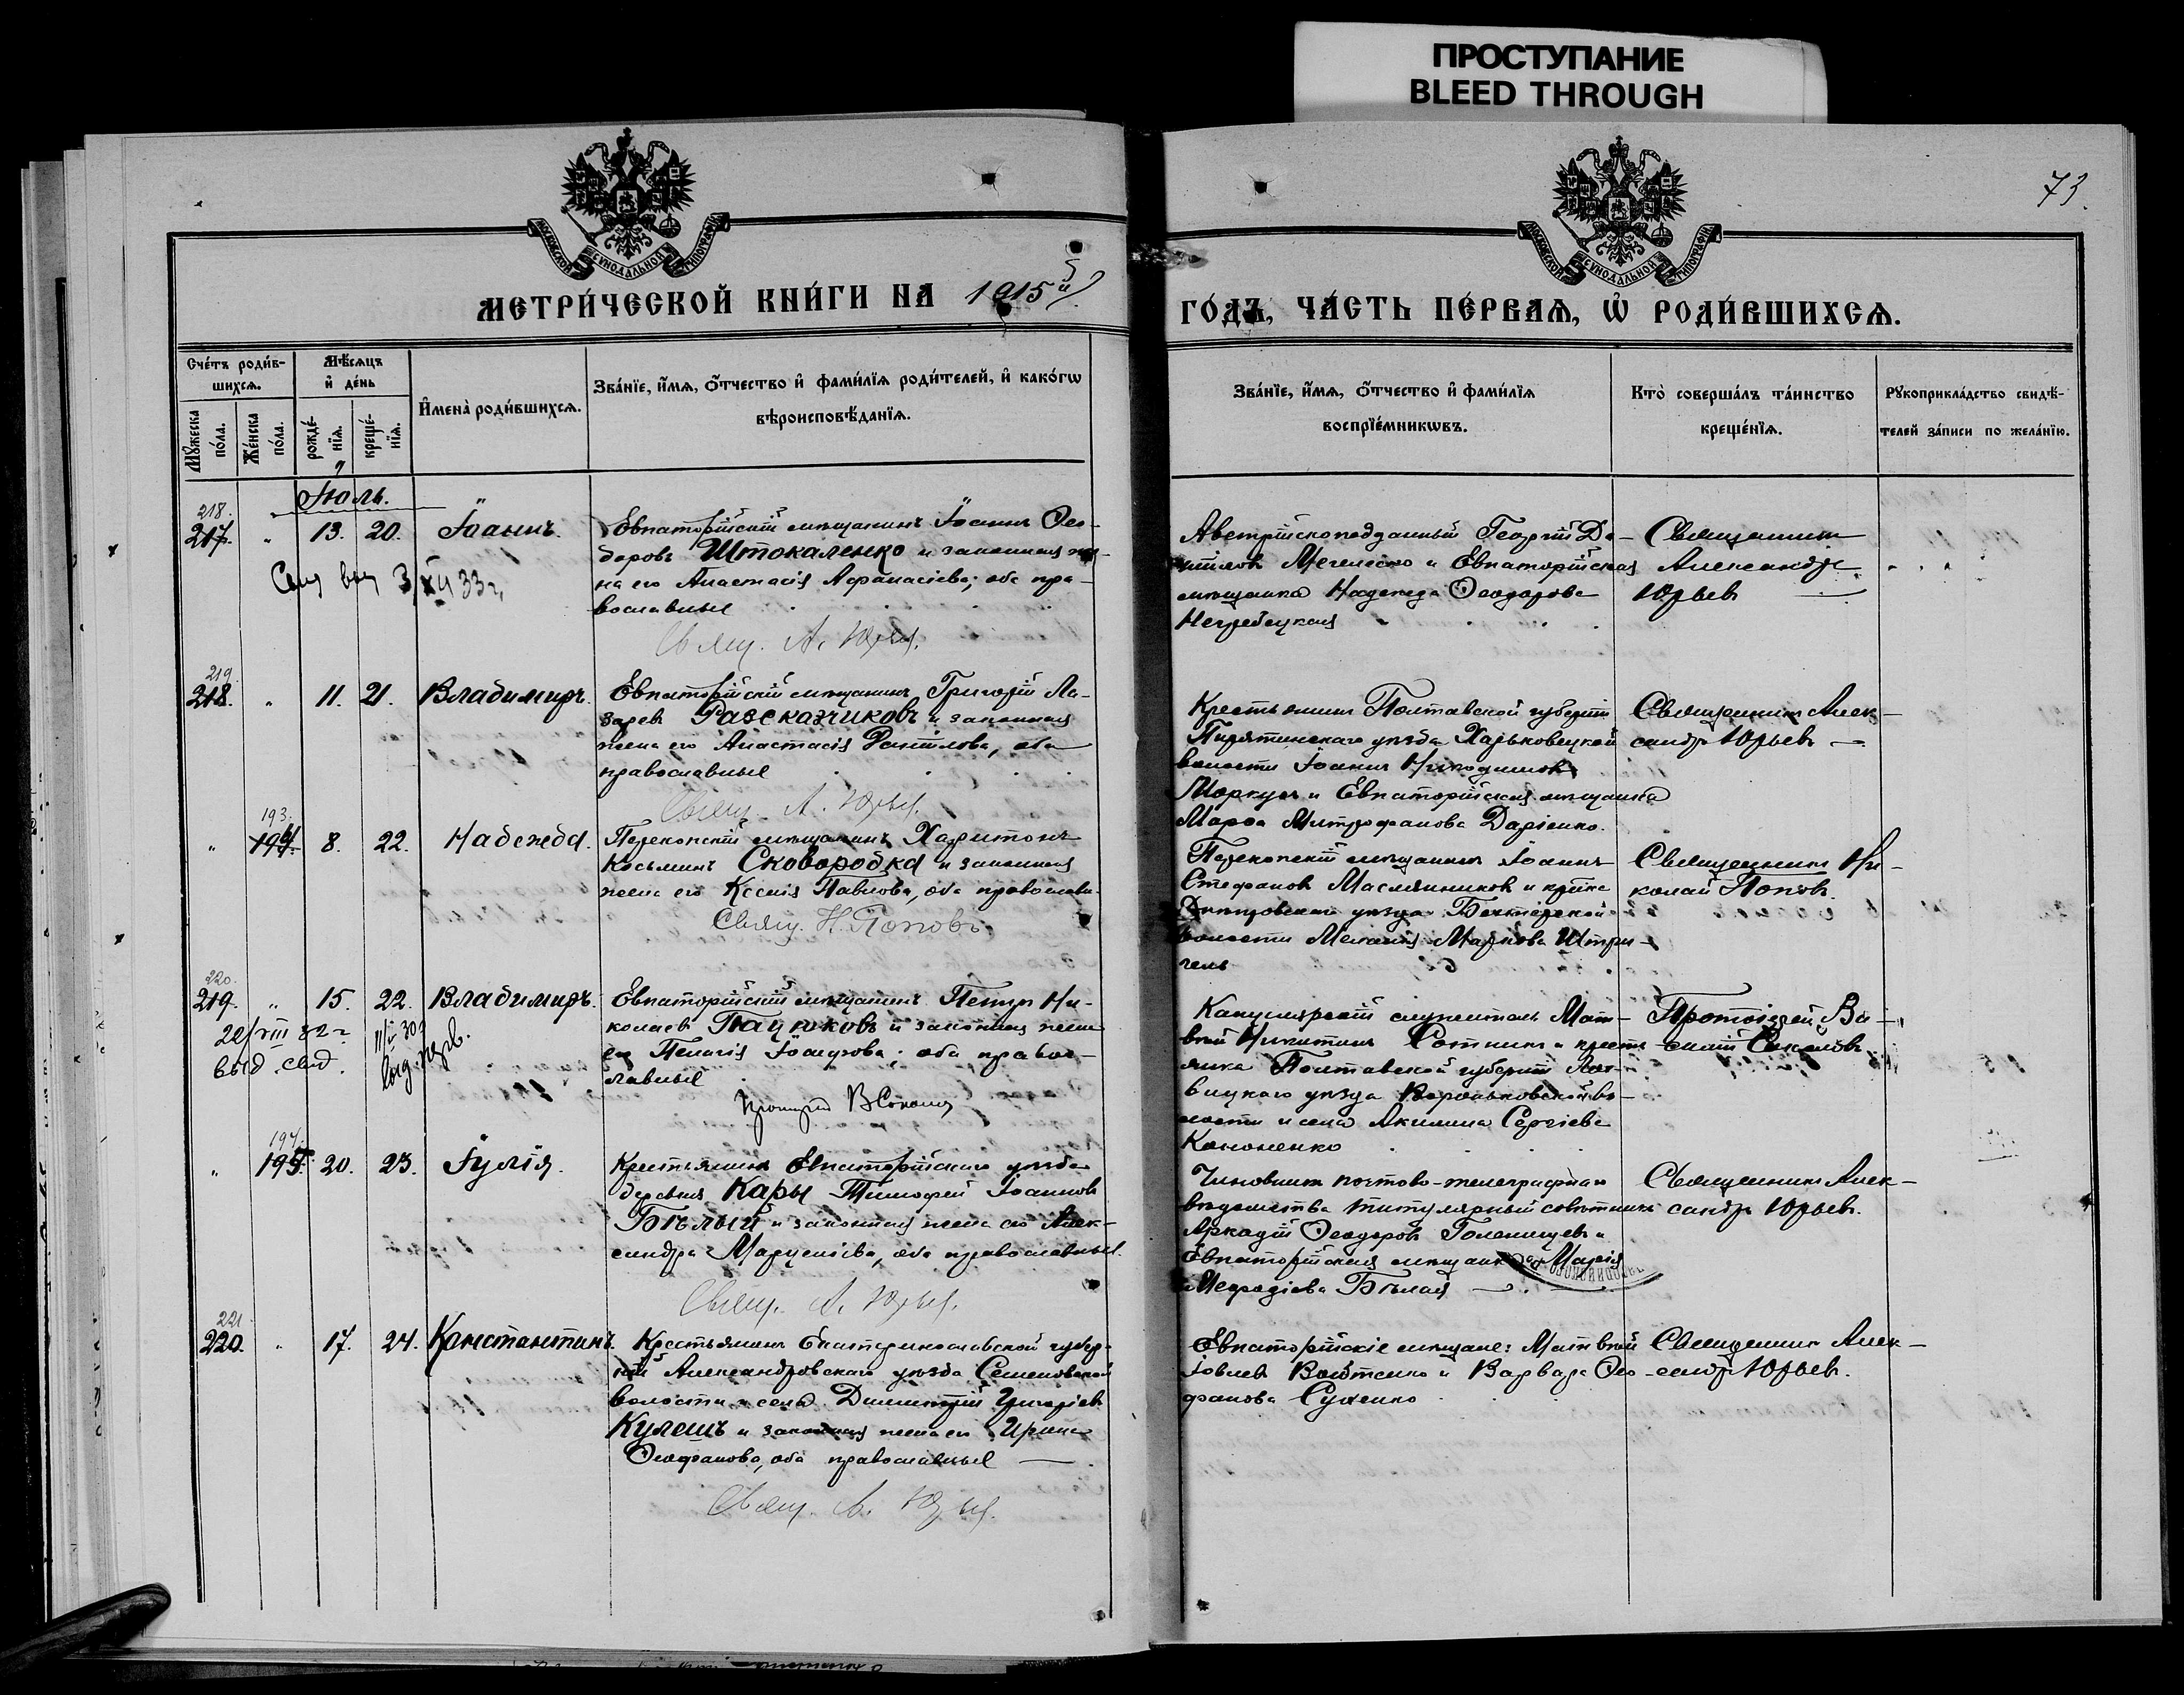 ПРОСТУПАНИЕ
BLEED THROUGH
73.
МОСКОВСКОЙ СУНОДАЛЬНОЙ ТИПОГРАФІИ
МОСКОВСКОЙ СУНОДАЛЬНОЙ ТИПОГРАФІИ
МЕТРИ́ЧЕСКОЙ КНИ́ГИ НА 1915й
ГО́ДЪ, ЧА́СТЬ ПЕ́РВАѦ, Ѡ҆ РОДИ́ВШИХСѦ.
Сче́тъ роди́в-
шихсѧ.
Мѣ́сѧцъ
и҆ де́нь
Мꙋ́жеска
по́ла.
Же́нска
по́ла.
рожде́-
нїѧ.
креще́-
нїѧ.
И҆мена̀ роди́вшихсѧ.
Зва́нїе, и҆́мѧ, ѻ҆́тчество и҆ фами́лїѧ роди́телей, и҆ како́гѡ
вѣроисповѣ́данїѧ.
Зва́нїе, и҆́мѧ, ѻ҆́тчество и҆ фами́лїѧ
воспрїе́мникѡвъ.
Кто̀ соверша́лъ та́инство
креще́нїѧ.
Рꙋкоприкла́дство свидѣ́-
телей за́писи по жела́нїю.
Іюль.
218.
217. " 13. 20. Іоаннъ.
Евпаторійскій мѣщанинъ Іоаннъ Ѳео-
доровъ Штокаленко и законная же-
на его Анастасія Аѳанасіева; оба пра-
вославные
Свящ. А. Юрьев.
Австрійскоподданный Георгій Да-
ніиловъ и Евпаторійская
мѣщанка Надежда Ѳеодорова
Негребецкая
Священникъ
Александръ
Юрьевъ
33г.
219.
218. " 11. 21. Владимиръ.
Евпаторійскій мѣщанинъ Григорій Ла-
заревъ Разсказчиковъ и законная
жена его Анастасія Даніилова, оба
православные
Свящ. А. Юрьев.
Крестьянинъ Полтавской губерніи
Пирятинскаго уѣзда Харьковецкой
волости Іоаннъ Никодимовъ
и Евпаторійская мѣщанка
Марѳа Митрофанова Даріенко.
Священникъ Алек-
сандръ Юрьевъ
193.
" 194. 8. 22. Надежда.
Перекопскій мѣщанинъ Харитонъ
Косьминъ Сковородка и законная
жена его Ксенія Павлова, оба православн.
Свящ. Н. Поповъ.
Перекопскій мѣщанинъ Іоаннъ
Стефановъ Масленниковъ и кр-нка
Днѣпровскаго уѣзда Бехтерской
волости Меланія Маркова Штри-
гель
Священникъ Ни-
колай Поповъ.
220.
219. " 15. 22. Владимиръ.
Евпаторійскій мѣщанинъ Петръ Ни-
колаевъ Пацюковъ и законная жена
его Пелагія; оба правос-
лавные
В Соколов
22/VIII 32 г
выд. свид.
Канцелярскій служитель Мат-
вѣй Никитинъ Сотникъ и кресть-
янка Полтавской губерніи Лох-
вицкаго уѣзда Вороньковской во-
лости и села Акилина Сергіева
Кононенко
Протоіерей Ва-
силій Соколовъ.
194.
" 195. 20. 23. Іулія.
Крестьянинъ Евпаторійскаго уѣзда
деревни Кары Тимофей Іоанновъ
Бѣлый и законная жена его Алек-
сандра Маркеліева, оба православные.
Свящ. А. Юрьев.
Чиновникъ почтово-телеграфнаго
вѣдомства титулярный совѣтникъ
Аркадій Ѳеодоровъ Голенищевъ и
Евпаторійская мѣщанка Марія
Меѳодіева Бѣлая
Священникъ Алек-
сандръ Юрьевъ.
221
220. " 17. 24. Константинъ.
Крестьянинъ Екатеринославской губер-
ніи Александровскаго уѣзда Семеновской
волости и села Димитрій Григоріевъ
Кулешъ и законная жена его Ирина
Ѳеофанова, оба православные
Свящ. А. Юрьев.
Евпаторійскіе мѣщане: Матвѣй
Іовлевъ Войтенко и Варвара Ѳео-
фанова Суженко
Священникъ Алек-
сандръ Юрьевъ.